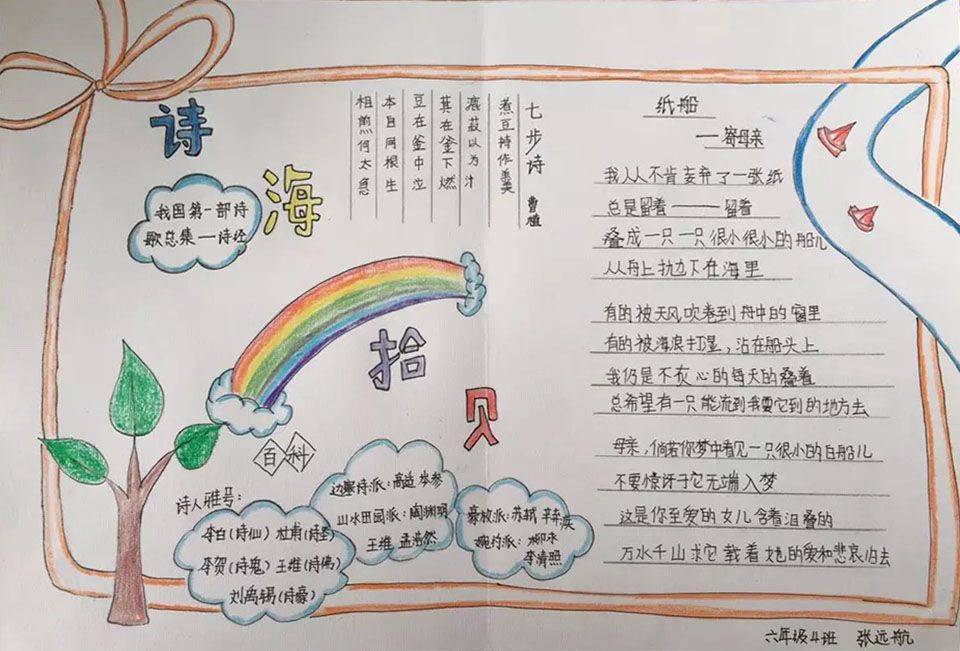 诗
海
拾
贝
我国第一部诗
歌总集—诗经
七步诗 曹植
煮豆持作羹
漉菽以为汁
萁在釜下燃
豆在釜中泣
本自同根生
相煎何太急
纸船
—寄母亲
我从不肯妄弃了一张纸
总是留着——留着
叠成一只一只很小很小的船儿
从舟上抛下在海里
有的被天风吹卷到舟中的窗里
有的被海浪打湿，沾在船头上
我仍是不灰心的每天的叠着
总希望有一只能流到我要它到的地方去
母亲，倘若你梦中看见一只很小的白船儿
不要惊讶于它无端入梦
这是你至爱的女儿含着泪叠的
万水千山求它载着她的爱和悲哀归去
百科
诗人雅号：
李白（诗仙）杜甫（诗圣）
李贺（诗鬼）王维（诗佛）
刘禹锡（诗豪）
边塞诗派：高适 岑参
山水田园派：陶渊明
王维 孟浩然
豪放派：苏轼 辛弃疾
婉约派：柳永
李清照
六年级4班 张远航